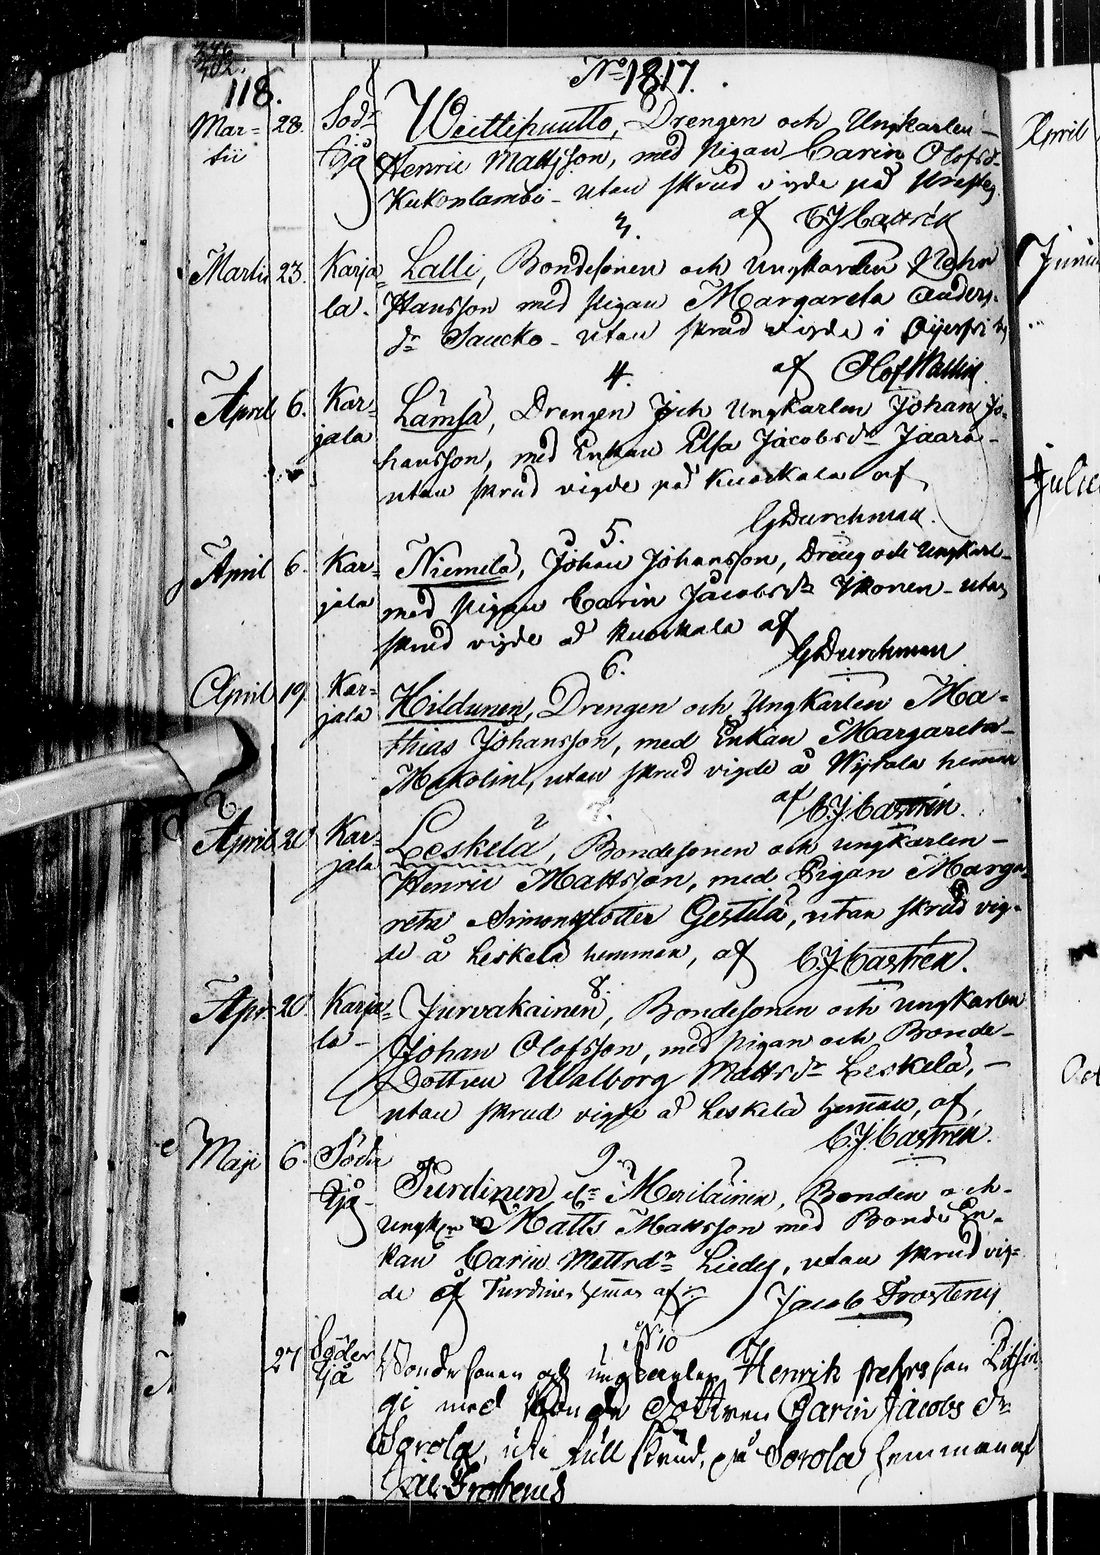 118.
No 1817.
Mar= 28. Söd= Weittihuutto, Drengen och Ungkarlen
tii kjå Henric Mattsson, med Pigan Carin Olofsd=
Kukonlambi - utan skrud vigde på
af C J Castrén
3.
Martii 23. Karja= Lalli, Bondesonen och Ungkarlen
la. Hansson med Pigan Margareta Anders=
dr Saucko - utan skrud vigde i
af Olof Wallin
4.
April 6. Kar= Lämsä, Drengen och Ungkarlen Johan Jo=
jala hansson, med Enkan Elsa Jacobsdr Jaara -
utan skrud vigde på Kuockala af
GDurchman.
5.
April 6. Kar= Niemelä, Johan Johansson, Dreng och Ungkarl
jala med Pigan Carin Jacobsdr Ikonen - utan
skrud vigde å Kuockala af
GDurchman
6.
April 19. Kar= Hildunen, Drengen och Ungkarlen Ma=
jala thias Johansson, med Enkan Margareta
utan skrud vigde å hemman
af C.J. Castrén.
7.
April 20 Kar= Leskelä, Bondesonen och ungkarlen -
jala Henric Mattsson, med Pigan Marga=
reta Simonsdotter Gestilä, utan skrud vig=
de å Leskelä hemman, af C.J. Castrén.
8.
Apr. 20. Karja= Jurvakainen, Bondesonen och ungkarlen
la - Johan Olofsson, med Pigan och Bonde=
Dottren Walborg Mattsdr Leskelä, -
utan skrud vigde å Leskelä hemman, af
C.J. Castrén.
9.
Maji 6. Söder Turdinen el= Meriläinen, Bonden och
kjå - Matts Mattsson med Bonde En=
kan Carin Mattsdr utan skrud vig=
de å hemman af Jacob Frosterus
No 10
27 Söder Bondesonen och ungkarlen Henrik
kjå
gi med Bonde dottren Carin Jacobs dr
Sorola, uti full skrud, på Sorola hemman af
Jac. Frosterus
April
Junii
Julii
Oct